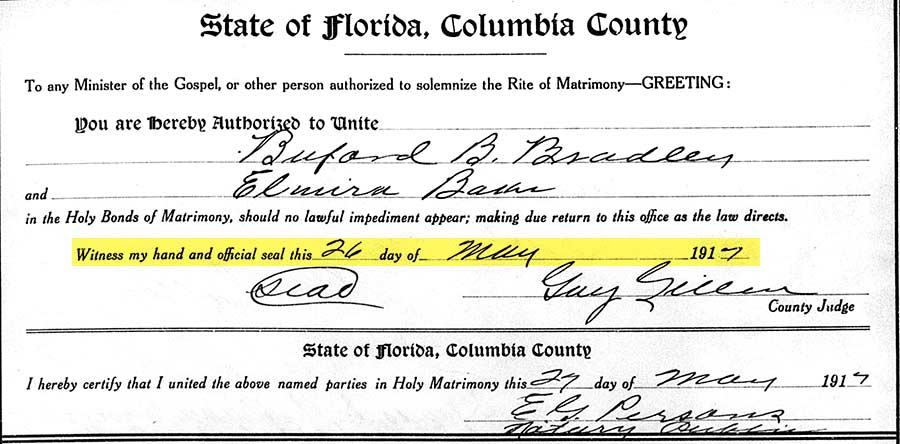 State of Florida, Columbia County
To any Minister of the Gospel, or other person authorized to solemnize the Rite of Matrimony—GREETING:
You are Hereby Authorized to Unite
Buford B. Bradley
and Elmira
in the Holy Bonds of Matrimony, should no lawful impediment appear; making due return to this office as the law directs.
Witness my hand and official seal this 26 day of May 1917
Seal Guy Gillen
County Judge
State of Florida, Columbia County
I hereby certify that I united the above named parties in Holy Matrimony this 27 day of May 1917
E G Persons
Notary Public